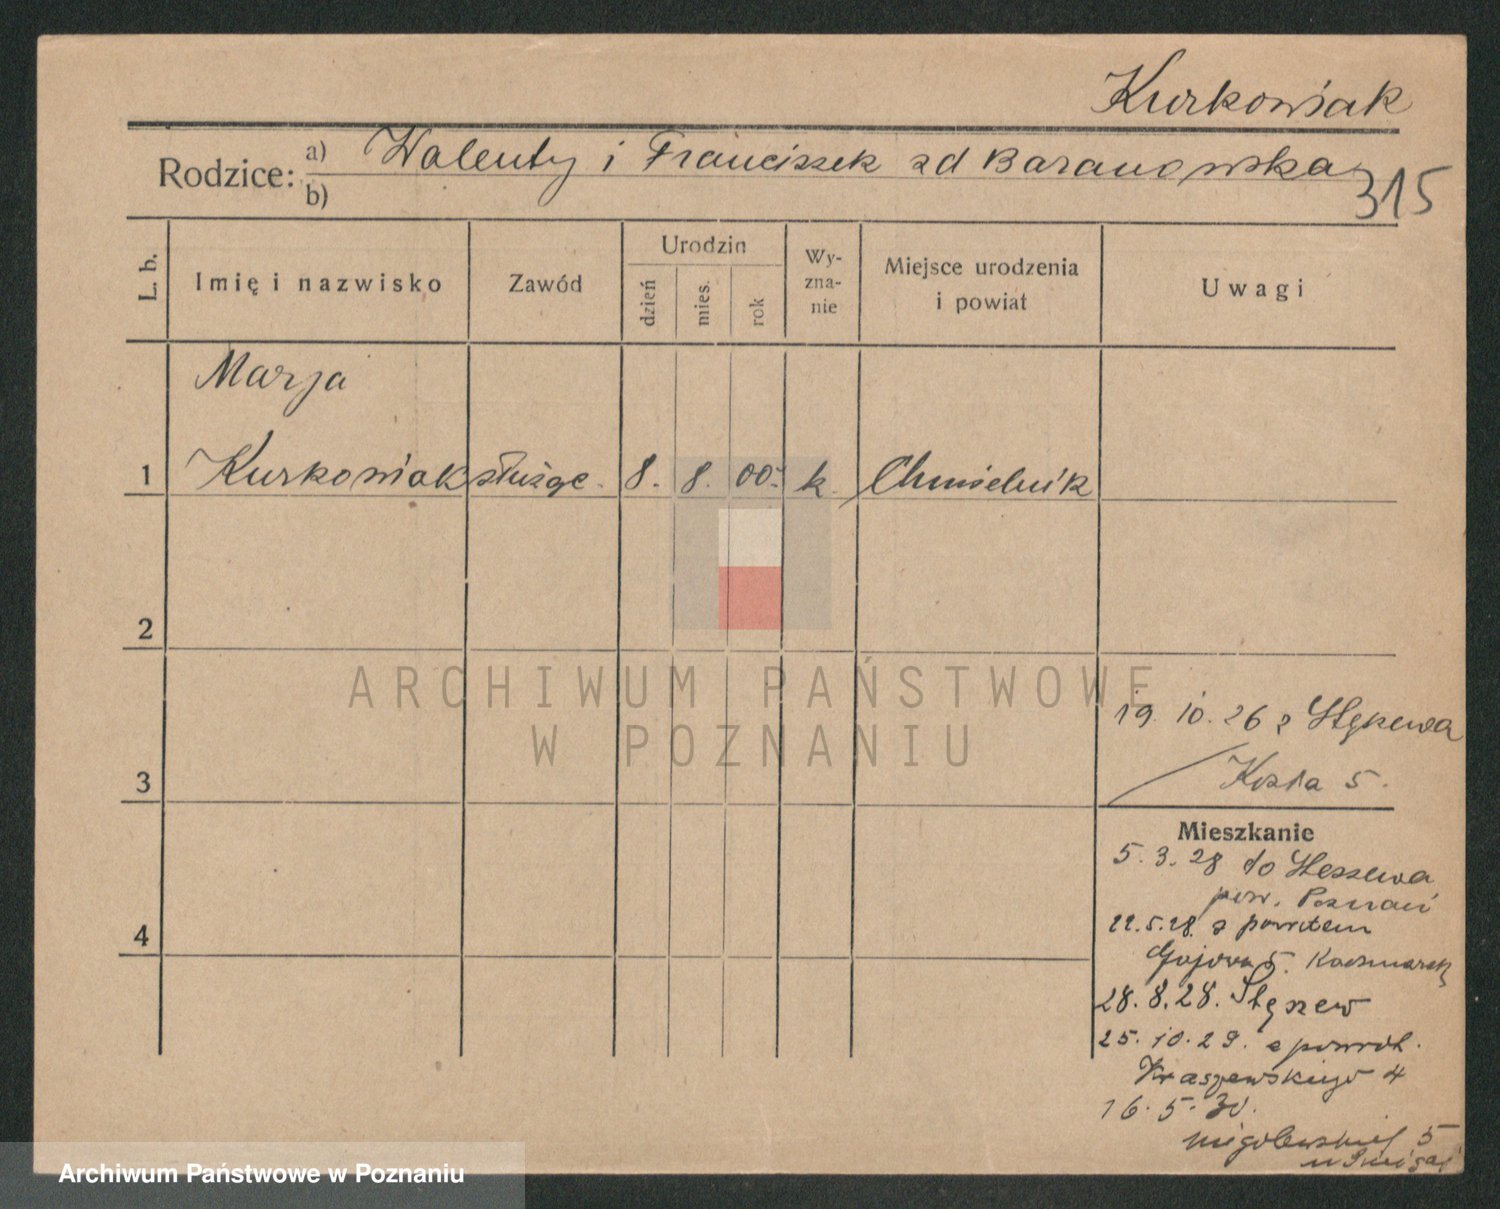 Kurkowiak
Rodzice: a) Walenty i Franciszek zd Baranowska
b)
315
L. b.
Imię i nazwisko
Zawód
Urodzin
dzień
mies.
rok
Wy-
zna-
nie
Miejsce urodzenia
i powiat
Uwagi
Marja
1 Kurkowiak służąc. 8. 8. 00. k. Chmielnik
2
ARCHIWUM PAŃSTWOWE
W POZNANIU
19. 10. 26 z
3
5.
Mieszkanie
5. 3. 28 do
pow. Poznań
22.5.28 z powrotem
4
5. Kaczmarek
28. 8. 28. Stęszew
25. 10. 29. z powrot.
Kraszewskiego 4
16. 5. 30.
5
Archiwum Państwowe w Poznaniu